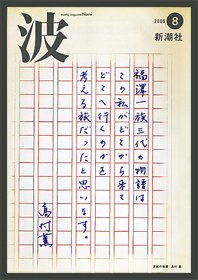 波
monthly magazine Nami
2009
8
新潮社
福澤一族三代の物語は
この私がどこから来て
どこへ行くのかを
考える旅だったと思います。
髙村薫